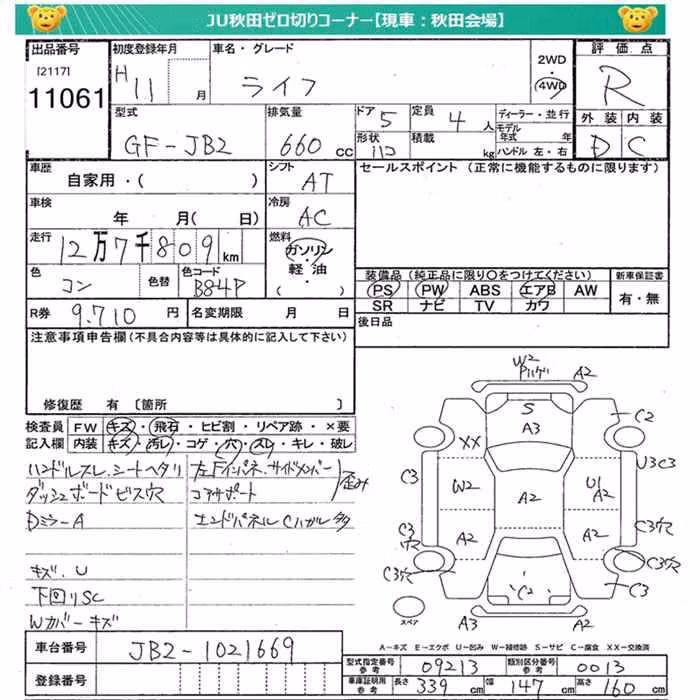 JU秋田ゼロ切りコーナー【現車：秋田会場】
出品番号 初度登録年月 車名・グレード 評価点
[2117]
11061
H 11 月 ライフ 2WD
・
4WD
R
型式 排気量 ドア 定員 ディーラー・並行 外装 内装
GF-JB2 660 cc 5 4人
形状 積載 kg モデル年式 年
ハンドル 左・右
D C
車歴 シフト セールスポイント（正常に機能するものに限ります）
自家用・( ) AT
車検 冷房
年 月( 日) AC
走行 燃料
12万7千809km ガソリン
・
軽油
( )
色 色替 色コード
コン B84P
装備品（純正品に限り○をつけてください） 新車保証書
PS PW ABS エアB AW 有・無
SR ナビ TV カワ
R券 9.710 円 名変期限 月 日
後日品
注意事項申告欄(不具合内容等は具体的に記入して下さい)
修復歴 有 〔箇所 〕
検査員 FW キズ・飛石・ヒビ割・リペア跡・×要
記入欄 内装 キズ・汚レ・コゲ・穴・スレ・キレ・破レ
ハンドルスレ.シートヘタリ
ダッシュボードビス穴
Dミラ-A
キズ.U
下回りSC
Wカバーキズ
左Fインパネ.サイドメンバー
コアサポート
歪み
エンドパネルCハガレ多
W2
A2
S
A3
C2
XX
C3
W2
A2
U1
A2
U3C3
C3穴
A2
A2
C3穴
C3穴
C3穴
C2
C3
スペア
A3
A2
A－キズ E－エクボ U－凹み W－補修跡 S－サビ C－腐食 XX－交換済
車台番号 JB2-1021669
登録番号
型式指定番号 参考 09213 類別区分番号 参考 0013
車庫証明用 参考 長さ 339 cm 幅 147 cm 高さ 160 cm